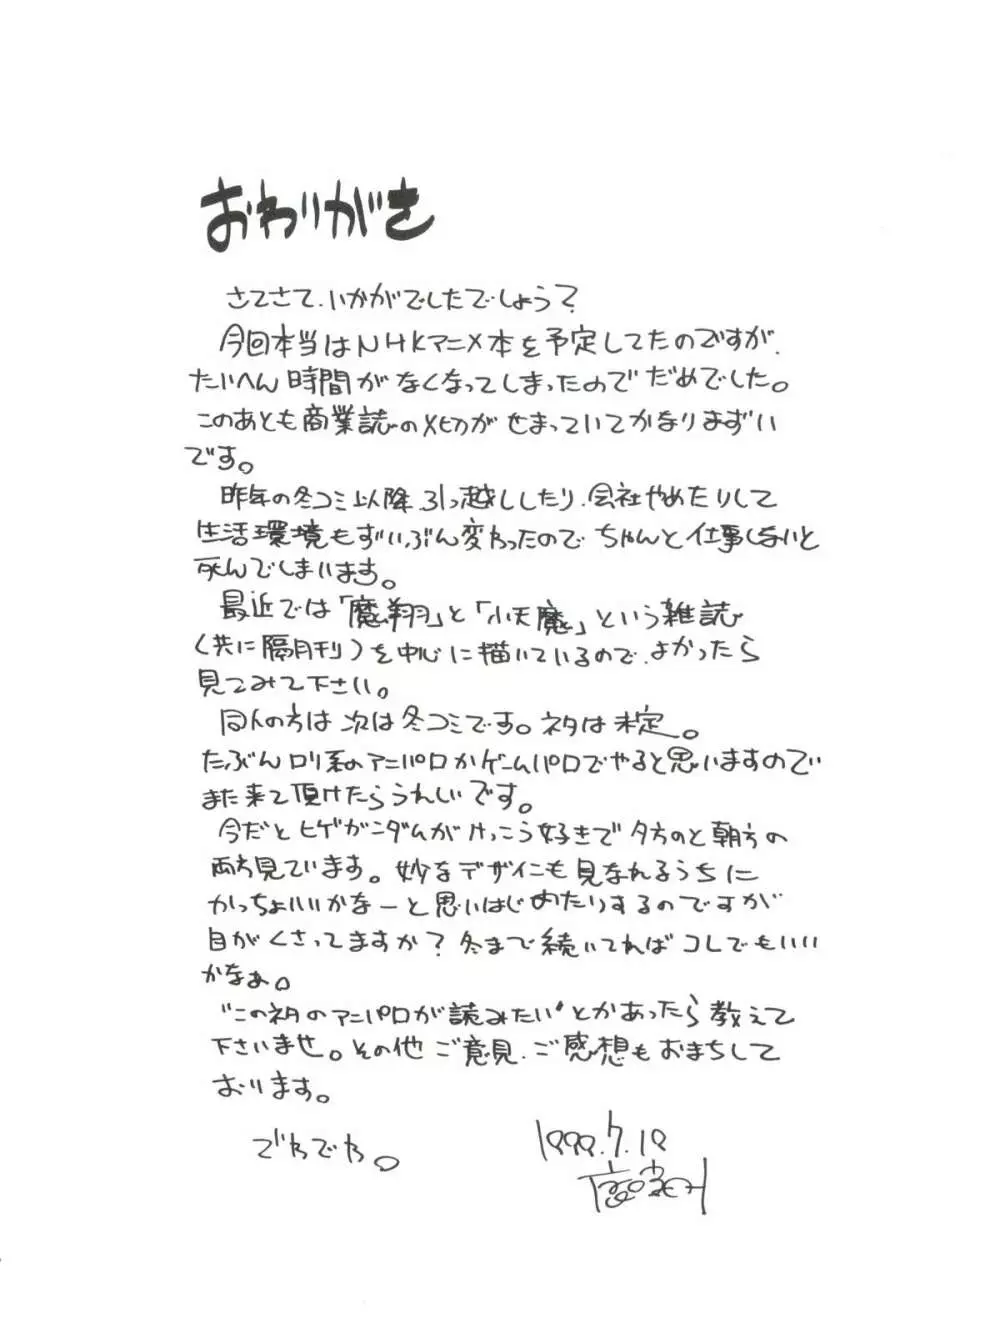 おわりがき
さてさて、いかがでしたでしょう？
今回本当はNHKアニメ本を予定してたのですが、
たいへん時間がなくなってしまったのでだめでした。
このあとも商業誌の〆切がせまっていてかなりまずい
です。
昨年の冬コミ以降、引っ越ししたり、会社やめたりして
生活環境もずいぶん変わったので ちゃんと仕事しないと
死んでしまいます。
最近では「魔翔」と「小天魔」という雑誌
（共に隔月刊）を中心に描いているので、よかったら
見てみて下さい。
同人の方は 次は冬コミです。ネタは未定。
たぶんロリ系のアニパロかゲームパロでやると思いますので
また来て頂けたらうれしいです。
今だとヒゲガンダムがけっこう好きで夕方のと朝方の
両方見ています。妙なデザインも見なれるうちに
かっちょいいかなーと思いはじめたりするのですが
目がくさってますか？冬まで続いてればコレでもいい
かなぁ。
“このネタのアニパロが読みたい”とかあったら教えて
下さいませ。その他ご意見、ご感想もおまちして
おります。
でわでわ。
1999.7.19